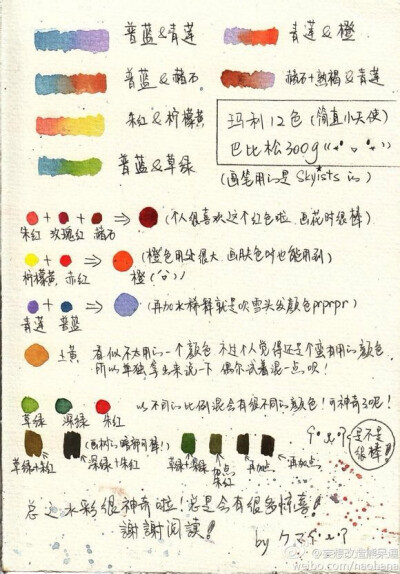 普蓝&青莲
青莲&橙
普蓝&赭石
赭石+熟褐&青莲
朱红&柠檬黄
玛利12色(简直小天使)
巴比松300g
普蓝&草绿
(画笔用的是Skyists的)
(个人很喜欢这个红色啦 画花时很棒)
朱红 玫瑰红 赭石
(橙色用处很大 画肤色时也能用到)
柠檬黄 赤红 橙
(再加水稀释就是吹雪头发颜色prprpr)
青莲 普蓝
土黄 看似不太用的一个颜色 不过个人觉得还是个蛮有用的颜色
所以单独拿出来说一下 偶尔试着混一点呗!
以不同的比例混会有很不同的颜色!可神奇了呢!
草绿 深绿 朱红
是不是很棒!
草绿+朱红
深绿+朱红
草绿+深绿
加点朱红
再加点
再加点
总之水彩很神奇啦!总是会有很多惊喜!
謝謝阅读!!
by クマ
weibo.com/naohana